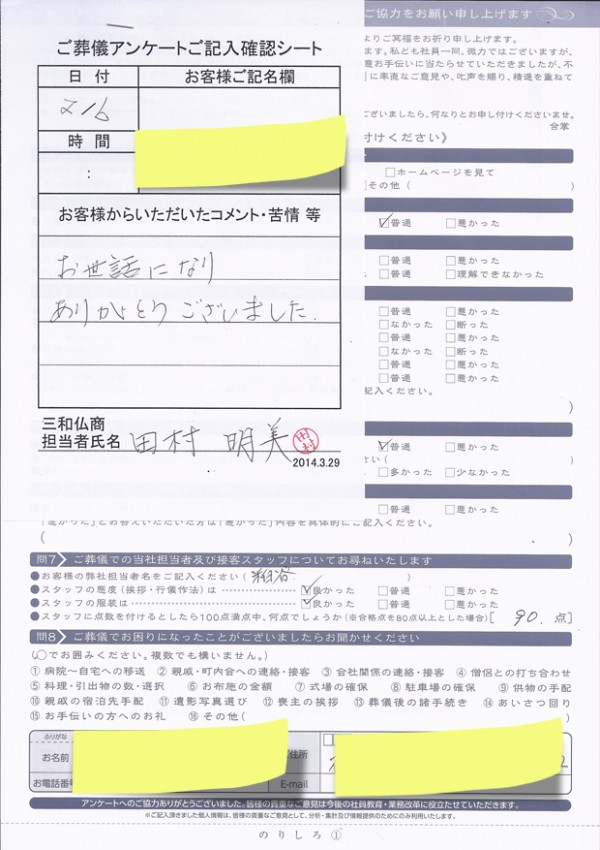 ご協力をお願い申し上げます
よりご冥福をお祈り申し上げます。
ます。私ども社員一同、微力ではございますが、
意お手伝いに当たらせていただきましたが、不
に率直なご意見や、叱声を賜り、精進を重ねて
ございましたら、何なりとお申し付けくださいませ。
合掌
付けください》
□ホームページを見て
□その他（
☑普通 □悪かった
□普通 □悪かった
□普通 □理解できなかった
□普通 □悪かった
□なかった □断った
□普通 □悪かった
□なかった □断った
□普通 □悪かった
□普通 □悪かった
記入ください。
）
☑普通 □悪かった
さい（ ）
□多かった □少なかった
□普通 □悪かった
ご葬儀アンケートご記入確認シート
日付 お客様ご記名欄
2/6
時間
：
お客様からいただいたコメント・苦情 等
お世話になり
ありがとうございました.
三和仏商
担当者氏名 田村 明美 田村
2014.3.29
「悪かった」とお答えいただいた方は「悪かった」内容を具体的にご記入ください。
（ ）
問7 ご葬儀での当社担当者及び接客スタッフについてお尋ねいたします
●お客様の弊社担当者名をご記入ください（ ）
●スタッフの態度（挨拶・行儀作法）は ☑良かった □普通 □悪かった
●スタッフの服装は ☑良かった □普通 □悪かった
●スタッフに点数を付けるとしたら100点満点中、何点でしょうか（※合格点を80点以上とした場合）[ 90. 点]
問8 ご葬儀でお困りになったことがございましたらお聞かせください
（○でお囲みください。複数でも構いません。）
①病院～自宅への移送 ②親戚・町内会への連絡・接客 ③会社関係の連絡・接客 ④僧侶との打ち合わせ
⑤料理・引出物の数・選択 ⑥お布施の金額 ⑦式場の確保 ⑧駐車場の確保 ⑨供物の手配
⑩親戚の宿泊先手配 ⑪遺影写真選び ⑫喪主の挨拶 ⑬葬儀後の諸手続き ⑭あいさつ回り
⑮お手伝いの方へのお礼 ⑯その他（ ）
ふりがな
お名前 ご住所
お電話番号 E-mail
アンケートへのご協力ありがとうございました。皆様の貴重なご意見は今後の社員教育・業務改革に役立たせていただきます。
※ご記入頂きました個人情報は、皆様の貴重なご意見として、分析・集計及び情報提供のためにのみ利用いたします。
のりしろ①